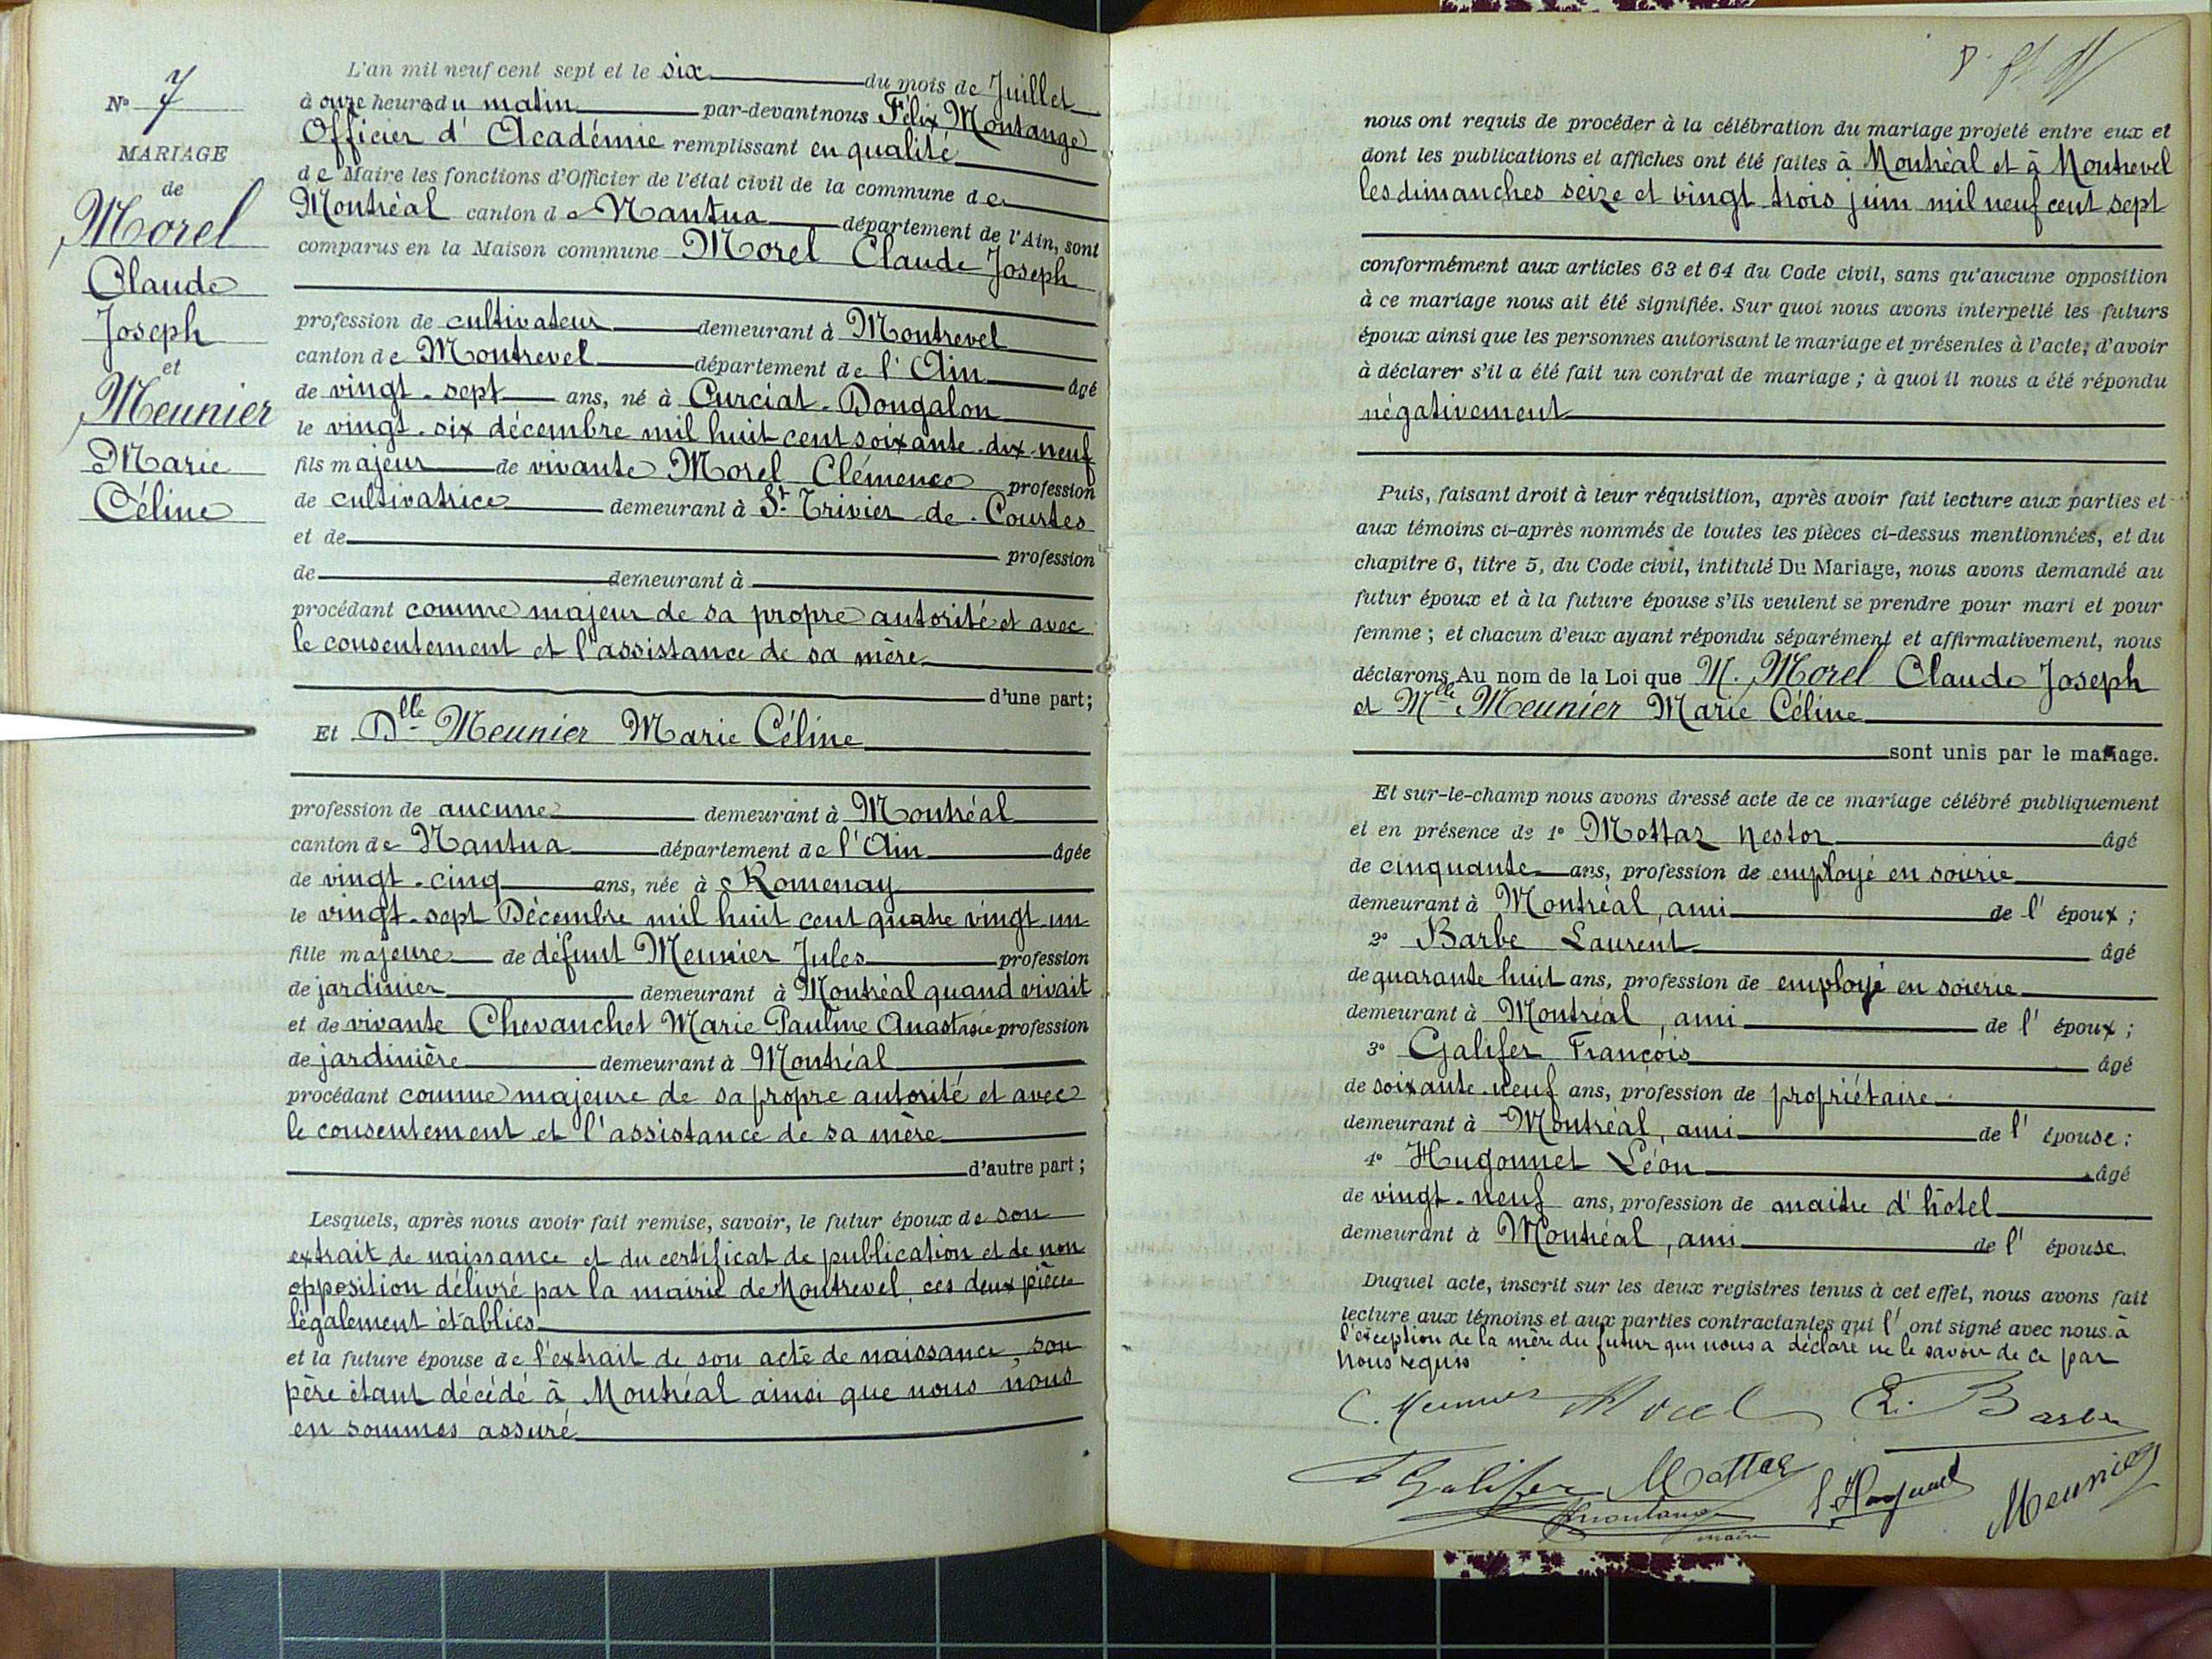 N° 7
MARIAGE
de
Morel
Claude
Joseph
et
Meunier
Marie
Céline
L'an mil neuf cent sept et le six du mois de Juillet
à onze heures du matin par-devant nous Félix Montange
Officier d'Académie remplissant en qualité
de Maire les fonctions d'Officier de l'état civil de la commune de
Montréal canton de Nantua département de l'Ain, sont
comparus en la Maison commune Morel Claude Joseph
profession de cultivateur demeurant à Montrevel
canton de Montrevel département de l'Ain âgé
de vingt-sept ans, né à Curciat-Dongalon
le vingt-six décembre mil huit cent soixante-dix-neuf
fils majeur de vivante Morel Clémence profession
de cultivatrice demeurant à St Trivier-de-Courtes
et de profession
de demeurant à
procédant comme majeur de sa propre autorité et avec
le consentement et l'assistance de sa mère
d'une part;
Et Dlle Meunier Marie Céline
profession de aucune demeurant à Montréal
canton de Nantua département de l'Ain âgée
de vingt-cinq ans, née à Romenay
le vingt-sept Décembre mil huit cent quatre vingt-un
fille majeure de défunt Meunier Jules profession
de jardinier demeurant à Montréal quand vivait
et de vivante Chevauchet Marie Pauline Anastasie profession
de jardinière demeurant à Montréal
procédant comme majeure de sa propre autorité et avec
le consentement et l'assistance de sa mère
d'autre part;
Lesquels, après nous avoir fait remise, savoir, le futur époux de son
extrait de naissance et du certificat de publication et de non
opposition délivré par la mairie de Montrevel, ces deux pièces
légalement établies
et la future épouse de l'extrait de son acte de naissance, son
père étant décédé à Montréal ainsi que nous nous
en sommes assuré
nous ont requis de procéder à la célébration du mariage projeté entre eux et
dont les publications et affiches ont été faites à Montréal et à Montrevel
les dimanches seize et vingt trois juin mil neuf cent sept
conformément aux articles 63 et 64 du Code civil, sans qu'aucune opposition
à ce mariage nous ait été signifiée. Sur quoi nous avons interpellé les futurs
époux ainsi que les personnes autorisant le mariage et présentes à l'acte, d'avoir
à déclarer s'il a été fait un contrat de mariage; à quoi il nous a été répondu
négativement
Puis, faisant droit à leur réquisition, après avoir fait lecture aux parties et
aux témoins ci-après nommés de toutes les pièces ci-dessus mentionnées, et du
chapitre 6, titre 5, du Code civil, intitulé Du Mariage, nous avons demandé au
futur époux et à la future épouse s'ils veulent se prendre pour mari et pour
femme; et chacun d'eux ayant répondu séparément et affirmativement, nous
déclarons Au nom de la Loi que M. Morel Claude Joseph
et Mlle Meunier Marie Céline
sont unis par le mariage.
Et sur-le-champ nous avons dressé acte de ce mariage célébré publiquement
et en présence de 1° Mottaz Nestor âgé
de cinquante ans, profession de employé en soierie
demeurant à Montréal, ami de l'époux;
2° Barbe Laurent âgé
de quarante huit ans, profession de employé en soierie
demeurant à Montréal, ami de l'époux;
3° Galifer François âgé
de soixante-neuf ans, profession de propriétaire
demeurant à Montréal, ami de l'épouse;
4° Hugonnet Léon âgé
de vingt-neuf ans, profession de maître d'hôtel
demeurant à Montréal, ami de l'épouse.
Duquel acte, inscrit sur les deux registres tenus à cet effet, nous avons fait
lecture aux témoins et aux parties contractantes qui l'ont signé avec nous à
l'exception de la mère du futur qui nous a déclaré ne le savoir de ce par
nous requis
C. Meunier Morel L. Barbe
F Galifer Mottaz L. Hugonnet Meunier
F Montange
maire